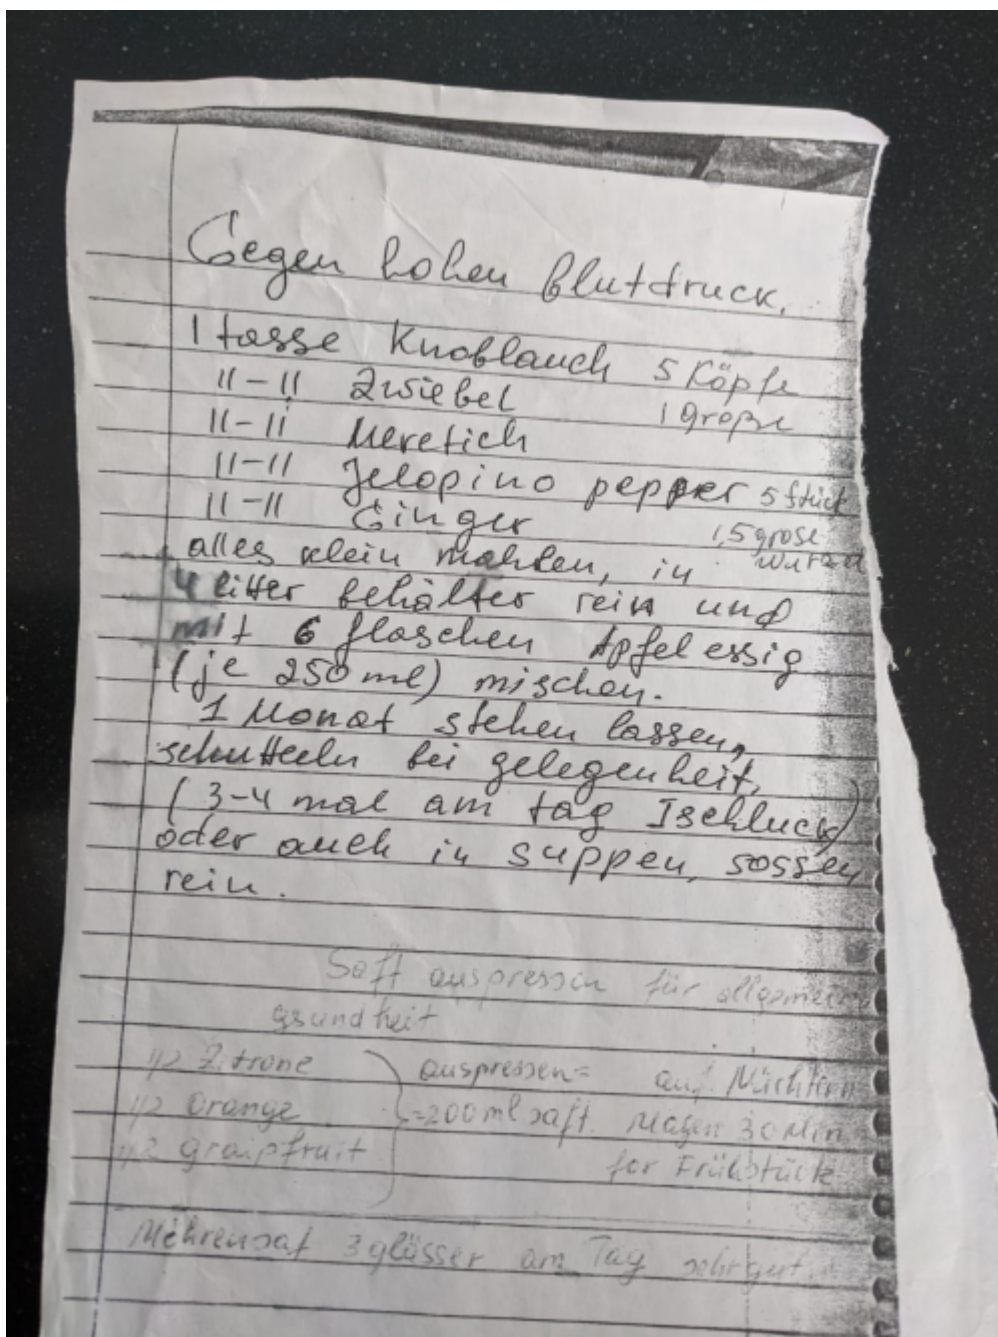 Gegen hohen Blutdruck.
1 tasse Knoblauch 5 Köpfe
11-11 Zwiebel 1 große
11-11 Meretich
11-11 Jelopino pepper 5 Stück
11-11 Ginger 1,5 grose
alles klein mahlen, in wurzel
4 litter behälter rein und
mit 6 flaschen Apfelessig
(je 250 ml) mischen.
1 Monat stehen lassen,
schutteln bei gelegenheit,
(3-4 mal am tag 1schluck)
oder auch in suppen, sossen
rein.
Saft auspressen für allgemein
gsundheit
1/2 Zitrone auspressen= auf Nüchtern
1/2 Orange =200ml saft. Magen 30 Min
1/2 graipfruit for Frühstück
Möhrensaf 3 glässer am Tag sehr gut.